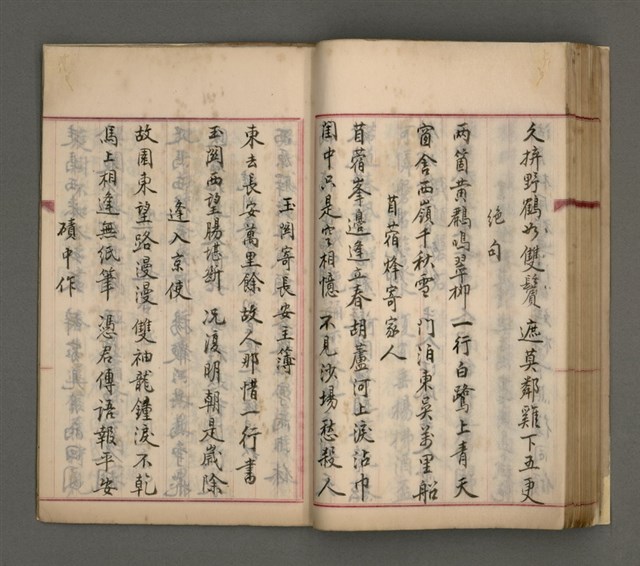 久拚野鶴如雙鬢　遮莫鄰雞下五更
絕句
兩箇黃鸝鳴翠柳　一行白鷺上青天
窗含西嶺千秋雪　門泊東吳萬里船
苜蓿烽寄家人
苜蓿峯邊逢立春　胡蘆河上淚沾巾
閨中只是空相憶　不見沙場愁殺人
玉關寄長安主簿
東去長安萬里餘　故人那惜一行書
玉關西望腸堪斷　況復明朝是歲除
逢入京使
故園東望路漫漫　雙袖龍鐘淚不乾
馬上相逢無紙筆　憑君傳語報平安
磧中作